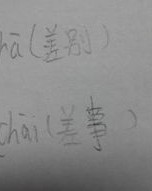 hā(差别)
chāi(差事)